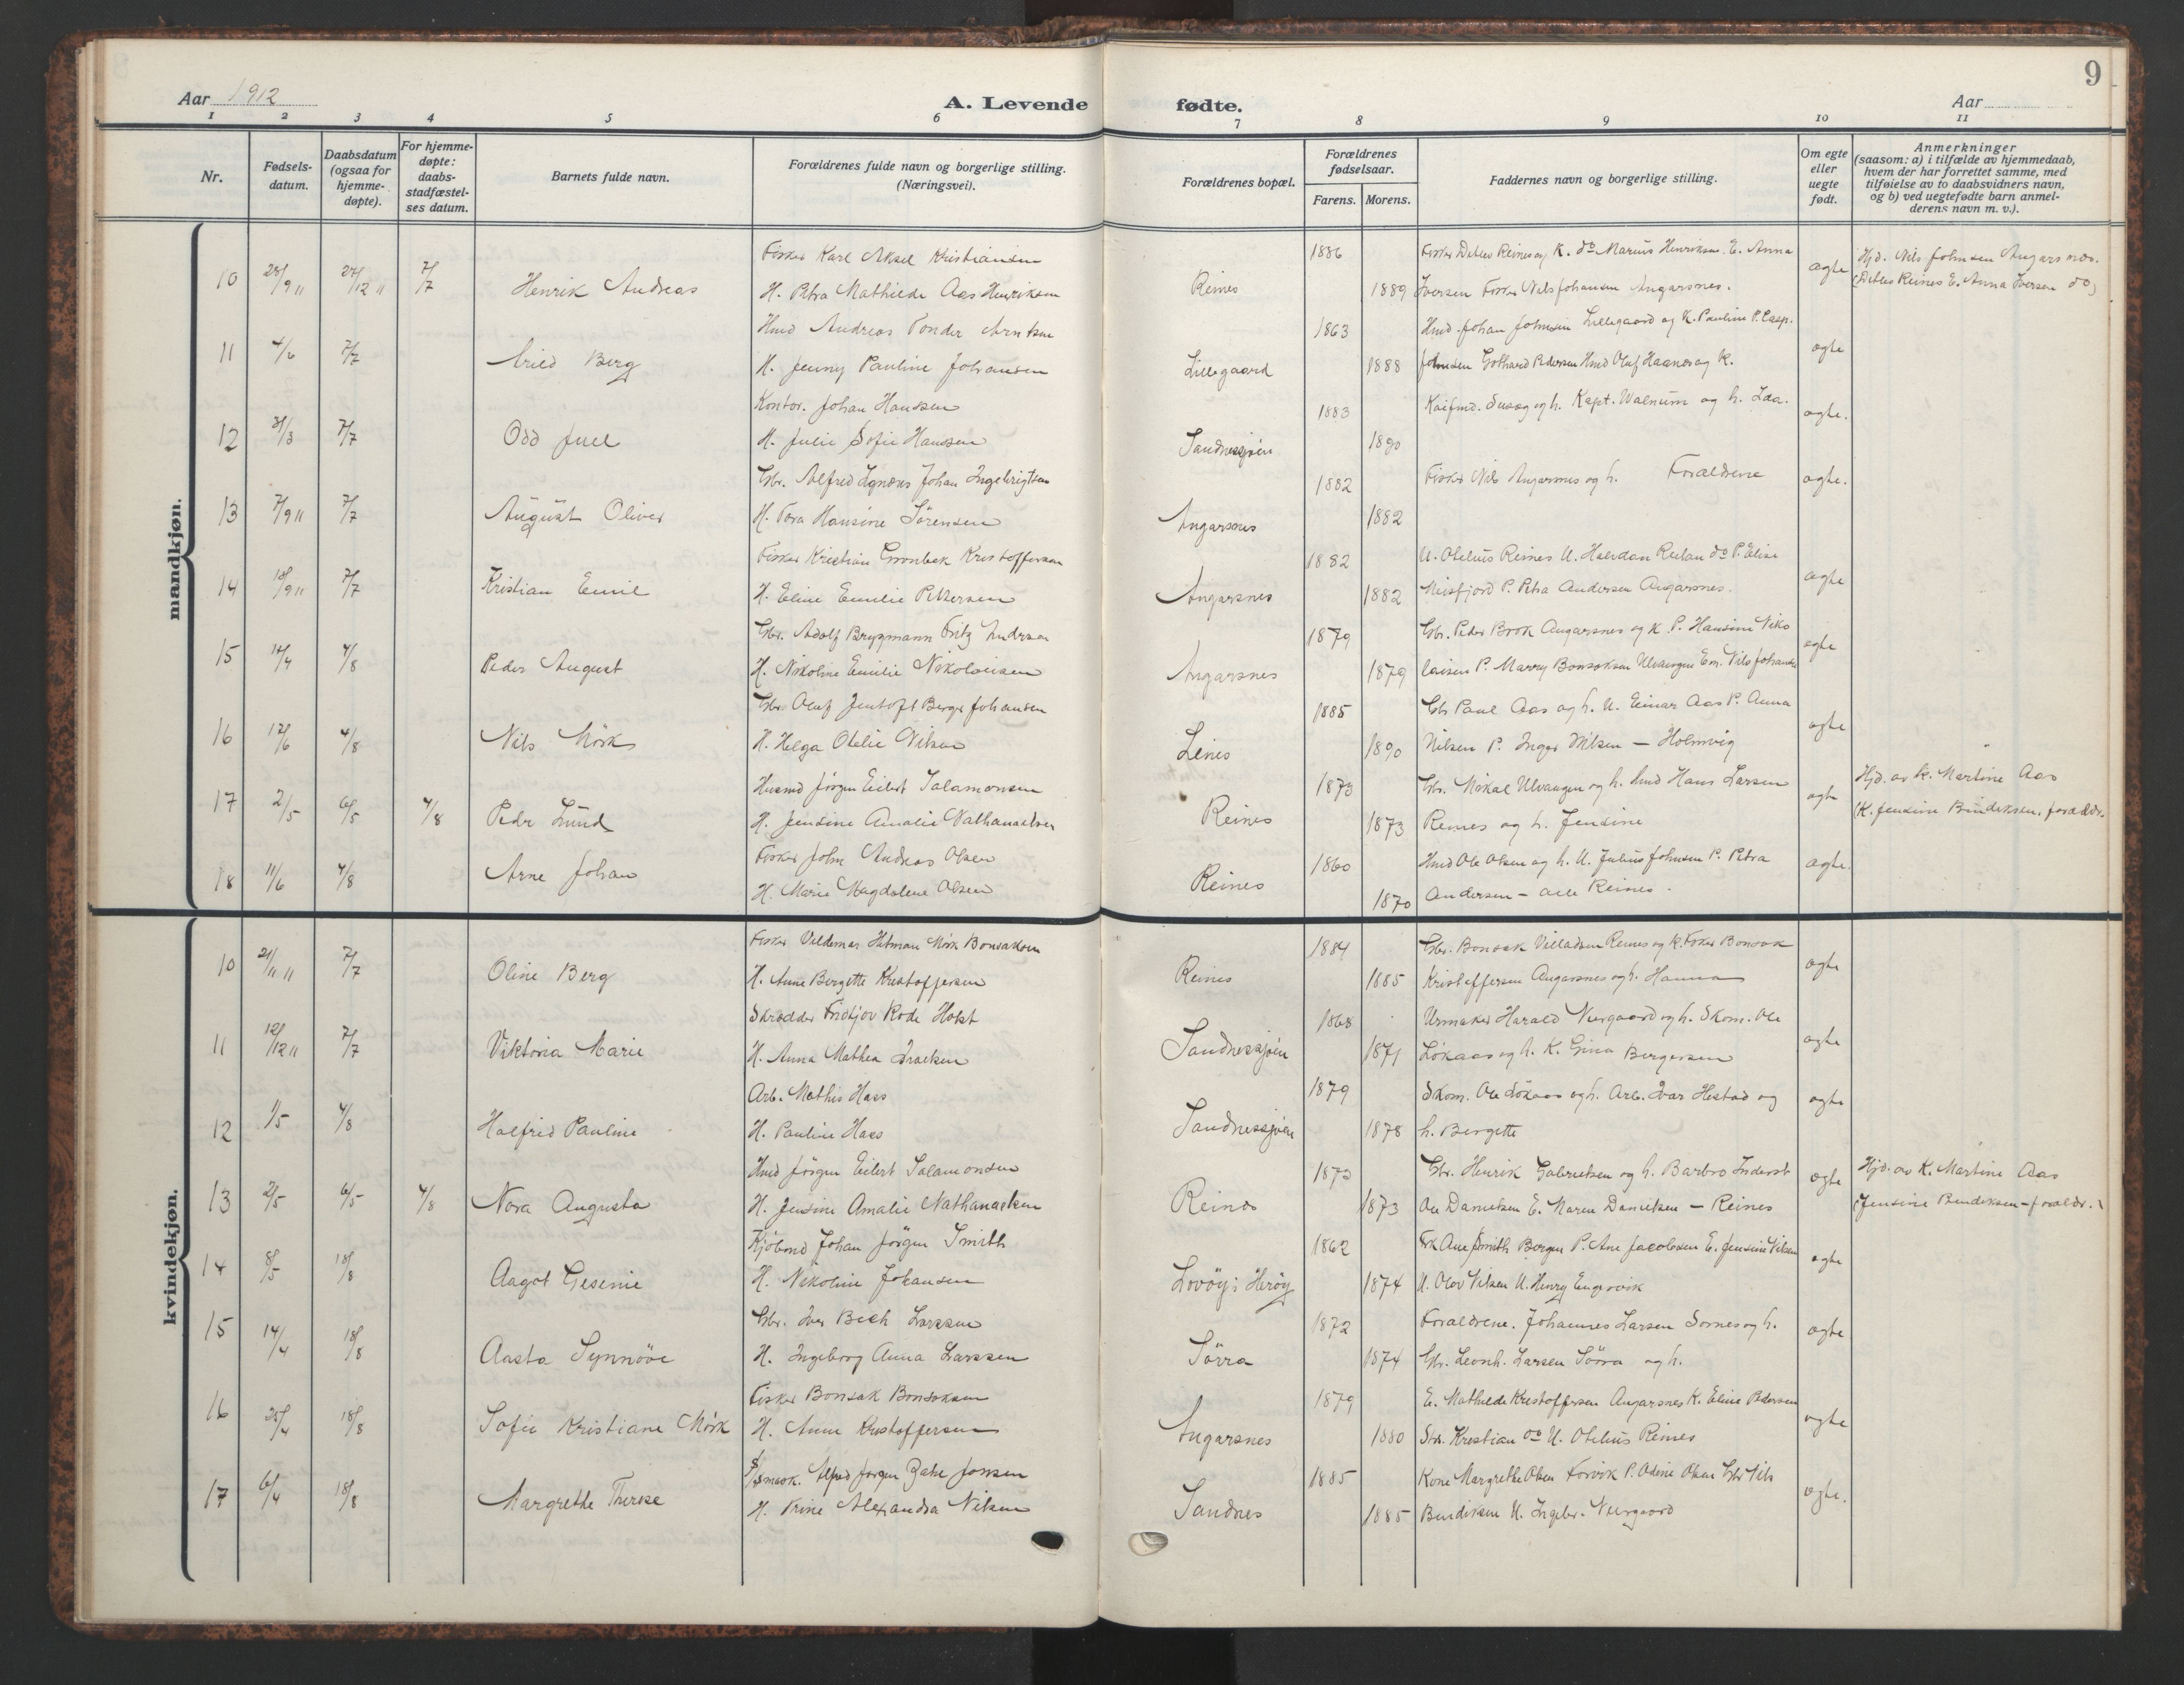 9
Aar 1912
A. Levende fødte.
Aar
1 2 3 4 5 6 7 8 9 10 11
Nr.
Fødsels-datum.
Daabsdatum (ogsaa for hjemme-døpte).
For hjemme-døpte: daabs-stadfæstel-ses datum.
Barnets fulde navn.
Forældrenes fulde navn og borgerlige stilling. (Næringsvei).
Forældrenes bopæl.
Forældrenes fødselsaar.
Farens. Morens.
Faddernes navn og borgerlige stilling.
Om egte eller uegte født.
Anmerkninger (saasom: a) i tilfælde av hjemmedaab, hvem der har forrettet samme, med tilføielse av to daabsvidners navn, og b) ved uegtefødte barn anmel-derens navn m. v.).
mandkjøn.
Fisker Karl Aksel Kristiansen 1886 Fisker Detlev Reines og K. do Marius Henriksen E. Anna
10 28/9 11 27/12 11 7/7 Henrik Andreas H. Petra Mathilde Aas Henriksen Reines 1889 Iversen Fisker Nils Johansen Angarsnes. ægte Hjd. Nils Johnsen Angarsnes.
(Detlev Reines E. Anna Iversen do)
Hmd Andreas Tonder Arntsen 1863 Hmd. Johan Johnsen Lillegaard og K. Pauline P. Casp.
11 4/6 7/7 Arild Berg H. Jenny Pauline Johansen Lillegaard 1888 Johnsen Gothard Pedersen Hmd Oluf Haanes og K. ægte
Kontor. Johan Hanssen 1883 Kapt. Walnum og h. Ida.
12 31/3 7/7 Odd Juel H. Julie Sofie Hanssen Sandnessjøen 1890 ægte.
Gbr. Alfred Johan Ingebrigtsen 1882 Fisker Nils Angarsnes og h. Forældrene
13 7/9 11 7/7 August Oliver H. Tora Hansine Sørensen Angarsnes 1882 ægte.
Fisker Kristian Grønbek Kristoffersen 1882 U. Otelius Reines U. Halvdan do P. Elise
14 18/9 11 7/7 Kristian Emil H. Eline Emilie Pettersen Angarsnes 1882 Meisfjord P. Petra Andersen Angarsnes. ægte
Gbr. Adolf Brygmann Fritz Andersen 1879 Gbr. Peder Brok Angarsnes og K. P. Hansine Niko
15 14/4 4/8 Peder August H. Nikoline Emilie Nikolaisen Angarsnes 1879 laisen P. Marry Bonsaksen Ulvangen Em. Nils Johansen ægte
Gbr Oluf Jentoft Berge Johansen 1885 Gbr Paul Aas og h. U. Einar Aas P. Anna
16 12/6 4/8 Nils Mørk H. Helga Otelie Nilsen Leines 1890 Nilsen P. Inger Nilsen — Holmvig ægte
Husmd Jørgen Eilert Salamonsen 1873 Gbr. Mikal Ulvangen og h. hmd Hans Larsen
17 2/5 6/5 4/8 Peder Lund H. Jensine Amalie Nathanaelsen Reines 1873 Reines og h. Jensine ægte Hjd. av K. Martine Aas
(K. Jensine Bendiksen. forældr.
Fisker John Andreas Olsen 1860 Hmd Ole Olsen og h. U. Julius Johnsen P. Petra
18 11/6 4/8 Arne Johan H. Marie Magdalene Olsen Reines 1870 Andersen - alle Reines. ægte.
kvindekjøn.
Fisker Valdemar Hitman Mørk Bonsaksen 1884 Gbr. Bonsak Villadsen Reines og K. Fisker Bonsak
10 21/11 11 7/7 Oline Berg H. Anne Bergitte Kristoffersen Reines 1885 Kristoffersen Angarsnes og h. Hanna ægte
Skrædder Fridtjov Rode Holst 1868 Urmaker Harald Nergaard og h. Skom. Ole
11 12/12 11 7/7 Viktoria Marie H. Anna Mathea Isaksen Sandnessjøen 1871 Løkaas og h. K. Gina Bergersen ægte
Arb. Mathis Haas 1879 Skom. Ole Løkaas og h. Arb. Ivar Hestad og
12 1/5 4/8 Halfrid Pauline H. Pauline Haas Sandnessjøen 1878 h. Bergitte ægte
Hmd Jørgen Eilert Salamonsen 1873 Gbr. Henrik Gabrielsen og h. Barbro Inderst
13 2/5 6/5 4/8 Nora Augusta H. Jensine Amalie Nathanaelsen Reines 1873 Ole Danielsen E. Maren Danielsen — Reines ægte Hjd. av K. Martine Aas
(Jensine Bendiksen - forældr.)
Kjøbmd Johan Jørgen Smith 1862 Frk Ane Smith Bergen P. Ane Jacobsen E. Jensine Nilsen
14 8/5 18/8 Aagot Gesenie H. Nikoline Johansen Lovøy i Herøy 1874 U. Olov Nilsen U. Henry Engesvik ægte
Gbr. Iver Bech Larssen 1872 Forældrene. Johannes Larsen Sornes og h.
15 14/4 18/8 Aasta Synnøve H. Ingeborg Anna Larssen Sørra 1874 Gbr. Leonh. Larsen Sørra og h. ægte
Fisker Bonsak Bonsaksen 1879 E. Mathilde Kristoffersen Angarsnes K. Eline Pedersen
16 25/4 18/8 Sofie Kristiane Mørk H. Anne Kristoffersen Angarsnes 1880 Kristian do U. Otelius Reines ægte
Alfred Jørgen Zahl Jonsen 1885 Kone Margrethe Olsen Forvik P. Odine Olsen Gbr Nils
17 6/4 18/8 Margrethe Therese H. Trine Alexandra Nilsen Sandnes 1885 Bendiksen U. Ingebr. Nergaard ægte.